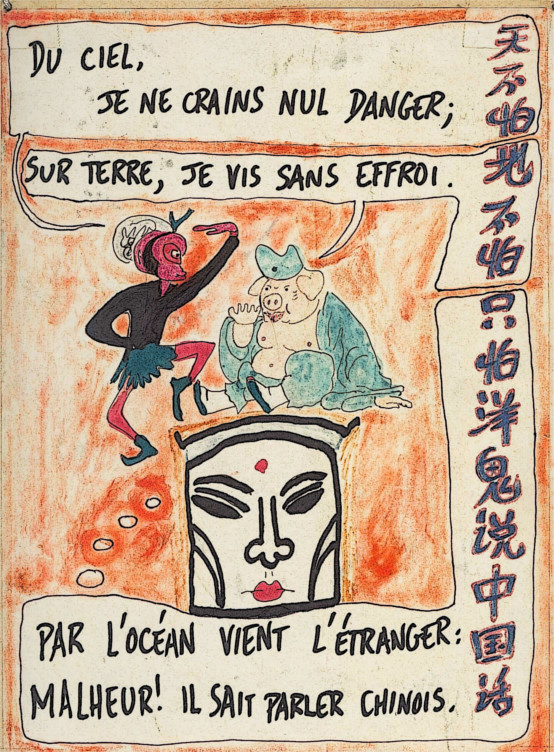 DU CIEL,
JE NE CRAINS NUL DANGER;
SUR TERRE, JE VIS SANS EFFROI.
PAR L'OCÉAN VIENT L'ÉTRANGER:
MALHEUR! IL SAIT PARLER CHINOIS.
天不怕地不怕只怕洋鬼说中国话